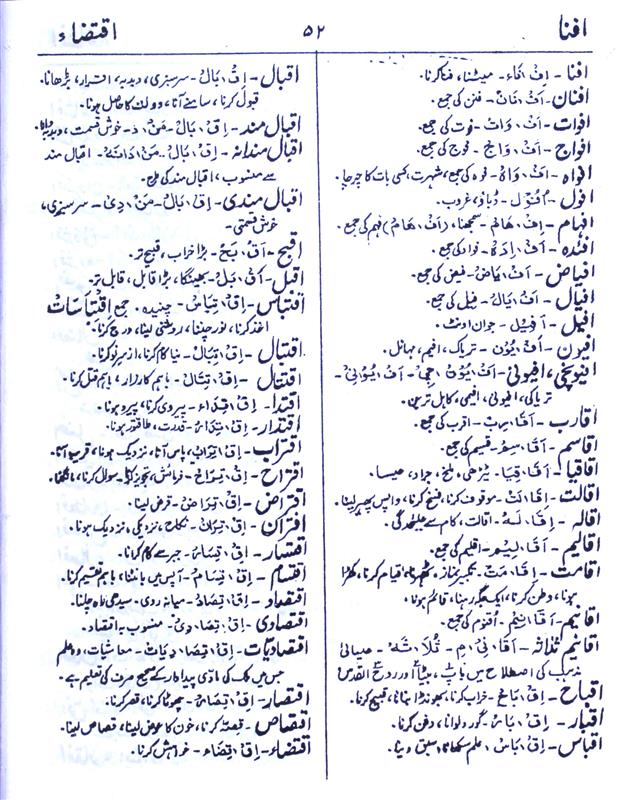 افنا
۵۲
اقتضاء
افنا - اِف ْ ا فَاء - میٹنا، فنا کرنا۔
افنان - اَف ْ ا نَان ْ - فنن کی جمع۔
افوات - اَف ْ ا وَات ْ - فوت کی جمع۔
افواج - اَف ْ ا وَاج ْ - فوج کی جمع۔
افواہ - اَف ْ ا وَاہ ْ - فوہ کی جمع، شہرت، کسی بات کا چرچا۔
افول - اُفُوْل - ڈباؤ، غروب۔
افہام - اِف ْ ا ھَام ْ - سمجھنا، (اَف ْ ا ھَام ْ) فہم کی جمع۔
افئدہ - اَف ْ ا اِدَہ ْ - فواد کی جمع۔
افیاض - اَف ْ ا یَاض ْ - فیض کی جمع۔
افیال - اَف ْ ا یَال ْ - فیل کی جمع۔
افیل - اَفِیْل - جوان اونٹ۔
افیون - اَف ْ ا یُوْن ْ - تریاک، افیم، مہاتل۔
افیونچی، افیونی - اَف ْ ا یُوْن ْ ا چِیْ - اَف ْ ا یُوْ ا نِیْ -
تریاکی، افیونی، افیمی، کاہل ترین۔
اقارب - اَقَا رِب ْ - اقرب کی جمع۔
اقاسم - اَقَا سِم ْ - قسیم کی جمع۔
اقاقیا - اَقَا قِیَا -
اقالت - اِقَا لَت ْ - موقوف کرنا، فسخ کرنا، واپس پھیر لینا۔
اقالہ - اِقَا لَہ ْ - اقالت، کام سے علیٰحدگی۔
اقالیم - اَقَا لِیْم - اقلیم کی جمع۔
اقامت - اِقَا مَت ْ - تکبیر نماز، ٹھہرنا، قیام کرنا، کھڑا
ہونا، وطن کرنا، ایک جگہ رہنا، قائم ہونا۔
اقانیم - اَقَا نِیْم - اقنوم کی جمع۔
اقانیم ثلاثہ - اَقَا نِیْ ا مِ - ثَلَا ثَہ ْ - عیسائی
مذہب کی اصطلاح میں باپ، بیٹا اور روح القدس
اقباح - اِق ْ ا بَاح ْ - خراب کرنا، بھونڈا بنانا، قبیح کرنا۔
اقبار - اِق ْ ا بَار ْ - گور دلوانا، دفن کرنا۔
اقباس - اِق ْ ا بَاس ْ - علم سکھانا، سبق دینا۔
اقبال - اِق ْ ا بَال ْ - سرسبزی، دبدبہ، اقرار، بڑھانا،
قبول کرنا، سامنے آنا، دولت کا حاصل ہونا۔
اقبال مند - اِق ْ ا بَال ْ - مَن ْ ا د - خوش قسمت،
اقبال مندانہ - اِق ْ ا بَال ْ - مَن ْ ا دَانَہ ْ - اقبال مند
سے منسوب، اقبال مند کی طرح۔
اقبال مندی - اِق ْ ا بَال ْ - مَن ْ ا دِیْ - سرسبزی،
خوش قسمتی۔
اقبح - اَق ْ ا بَح ْ - بڑا خراب، قبیح تر۔
اقبل - اَق ْ ا بَل ْ - بھینگا، بڑا قابل، قابل تر۔
اقتباس - اِق ْ ا تِبَاس ْ - چنیدہ۔ جمع اقتباسات
اخذ کرنا، نور چننا، روشنی لینا، درج کرنا۔
اقتبال - اِق ْ ا تِبَال ْ - نیا کام کرنا، از سرِ نو کرنا۔
اقتتال - اِق ْ ا تِتَال ْ - باہم کارزار، باہم قتل کرنا۔
اقتدا - اِق ْ ا تِدَاء - پیروی کرنا، پیرو ہونا۔
اقتدار - اِق ْ ا تِدَار ْ - قدرت، طاقتور ہونا۔
اقتراب - اِق ْ ا تِرَاب ْ - پاس آنا، نزدیک ہونا، قریب آنا۔
اقتراح - اِق ْ ا تِرَاح ْ - فرمائش، تجویز کرنا، سوال کرنا، مانگنا۔
اقتراض - اِق ْ ا تِرَاض ْ - قرض لینا۔
اقتران - اِق ْ ا تِرَان ْ - نکاح، نزدیکی، نزدیک ہونا۔
اقتسار - اِق ْ ا تِسَار ْ - جبر سے کام کرنا۔
اقتسام - اِق ْ ا تِسَام ْ - آپس میں بانٹنا، باہم تقسیم کرنا۔
اقتصاد - اِق ْ ا تِصَاد ْ - میانہ روی، سیدھی راہ چلنا۔
اقتصادی - اِق ْ ا تِصَا دِیْ - منسوب بہ اقتصاد۔
اقتصادیات - اِق ْ ا تِصَا دِیَات ْ - معاشیات، وہ علم
جس میں ملک کی مادی پیداوار کے صحیح صرف کی تعلیم ہے۔
اقتصار - اِق ْ ا تِصَار ْ - چھوٹا کرنا، قصر کرنا۔
اقتصاص - اِق ْ ا تِصَاص ْ - قصہ کرنا، خون کا عوض لینا، قصاص لینا۔
اقتضاء - اِق ْ ا تِضَاء - خواہش کرنا۔